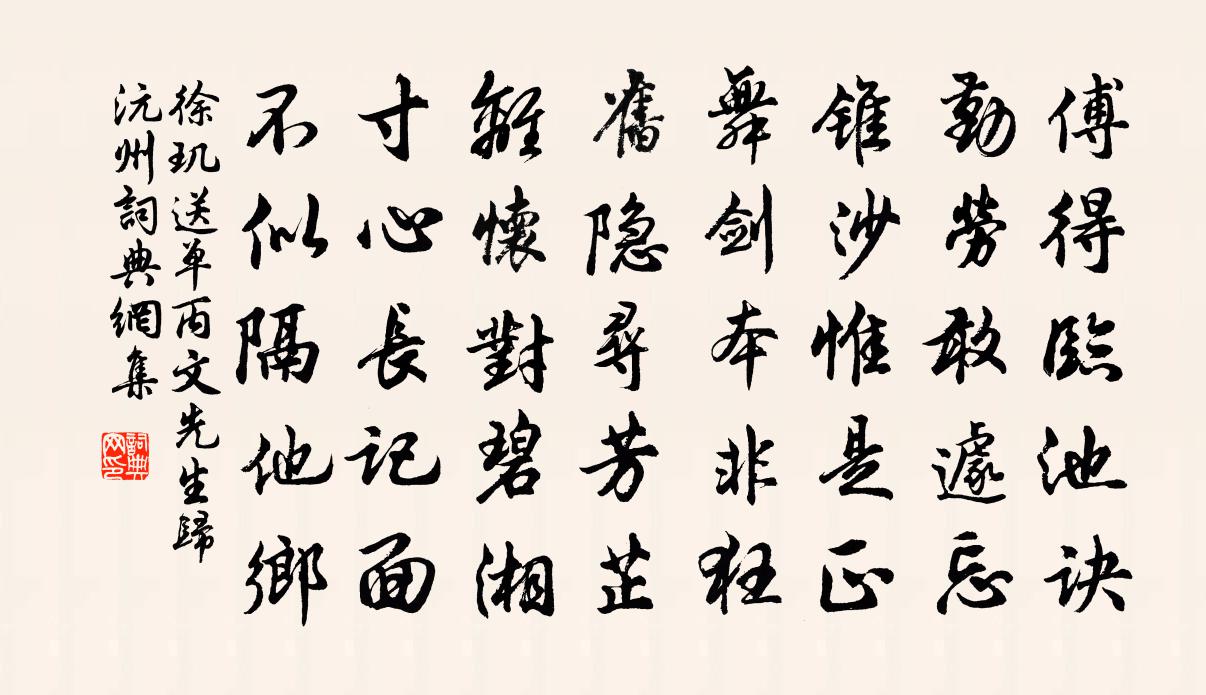 傅得臨池訣
勤勞敢遽忘
錐沙惟是正
舞劍本非狂
舊隐尋芳芷
離懷對碧湘
寸心長記面
不似隔他鄉
徐玑送单丙文先生歸
沅州詞典網集
詞典
网印